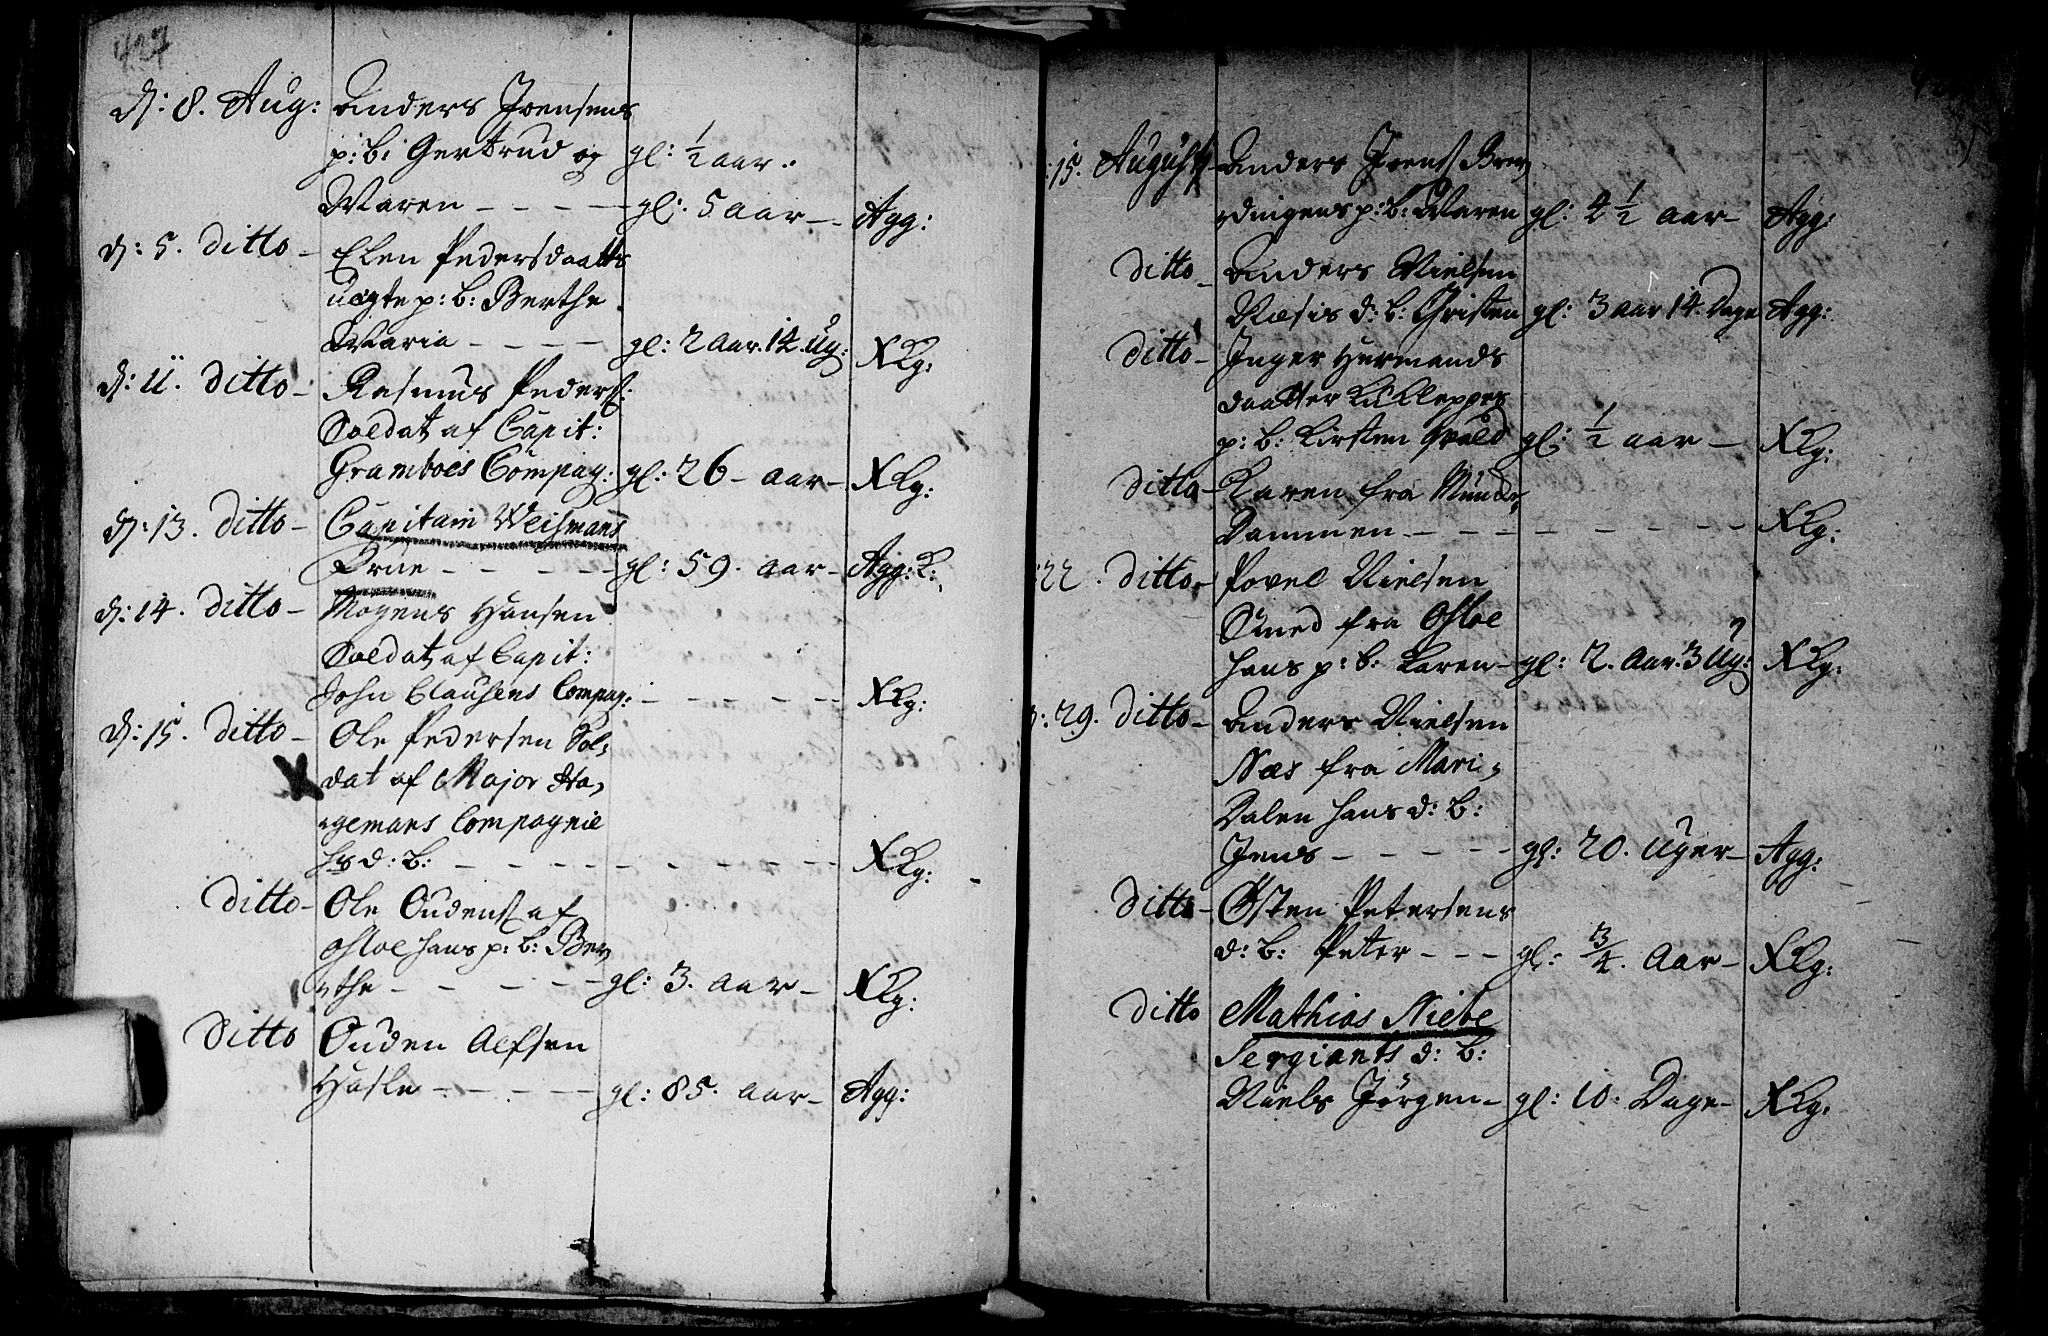 427
D: 8. Aug: Anders Joensens
p: b: Gertrud og gl: ½ aar.
Maren - - - - gl: 5 aar - Agg:
D: 5. ditto - Elen Pedersdaatts
uægte p: b: Berthe
Maria - - - - gl: 2 aar. 14. Ug: XKg:
D: 11. ditto - Rasmus Peders:
Soldat af Capit:
Gramboes Compag: gl: 26 - aar - XKg:
D: 13. ditto - Capitain Weismans
Frue - - - - - gl: 59. aar - Agg: K:
D: 14. ditto - Mogens Hansen
Soldat af Capit:
John Clausens Compag: - - - - - XKg:
D: 15. ditto - Ole Pedersen Sol-
dat af Major Ha-
gemans Compagnie
hs d: b: - - - - - - - - XKg:
ditto - Ole Oudens af
Osloe hans p: b: Ber-
the - - - - - gl: 3. aar - XKg:
ditto Ouden Alfsen
Hasle - - - - - gl: 85. aar - Agg:
15. August - Anders Joens
p: b: Maren gl: 4 ½ aar - Agg:
ditto - Anders Nielsen
Næsis d: b: Christen gl: 3 aar 14. Dage Agg:
ditto - Inger Hermands
daatter
p: b: Kirsten gl: ½ aar - XKg:
ditto - Karen fra Munke
Dammen - - - - - - - - XKg:
22. ditto - Povel Nielsen
Smed fra Osloe
hans p: b: Karen - gl: 2. Aar. 3 Ug: XKg:
D: 29. ditto - Anders Nielsen
Næs fra Mari-
Dalen hans d: b:
Jens - - - - - gl: 20. Uger - Agg:
ditto - Østen Petersens
d: b: Peter - - - gl: ¾. Aar - XKg:
ditto Mathias Niebe
Sergiants d: b:
Niels Jörgen - gl: 10. Dage - XKg: